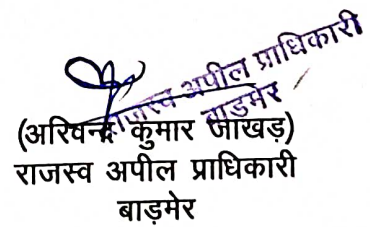 राजस्व अपील प्राधिकारी
बाडमेर
(अरविन्द कुमार जाखड़)
राजस्व अपील प्राधिकारी
बाड़मेर